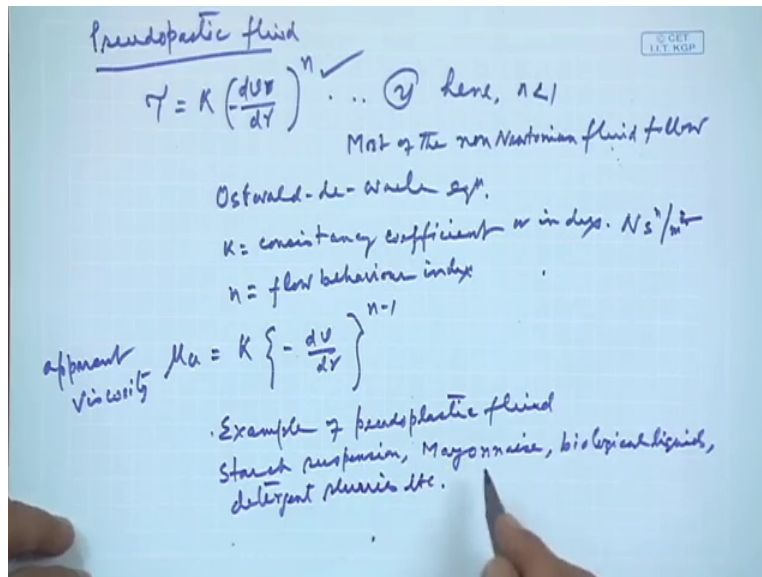 Pseudopastic fluid
© CET
I.I.T. KGP
τ = K (-dυr/dr)^n ✓ ... here, n<1
Most of the non Newtonian fluid follow
Ostwald-de-waele eqn.
K = consistancy coefficient or index. N s^n/m^2
n = flow behaviour index
apparent viscosity μa = K { - dυ/dr }^n-1
. Example of pseudoplastic fluid
Starch suspension, Mayonnaise, biological liquids,
detergent slurries etc.